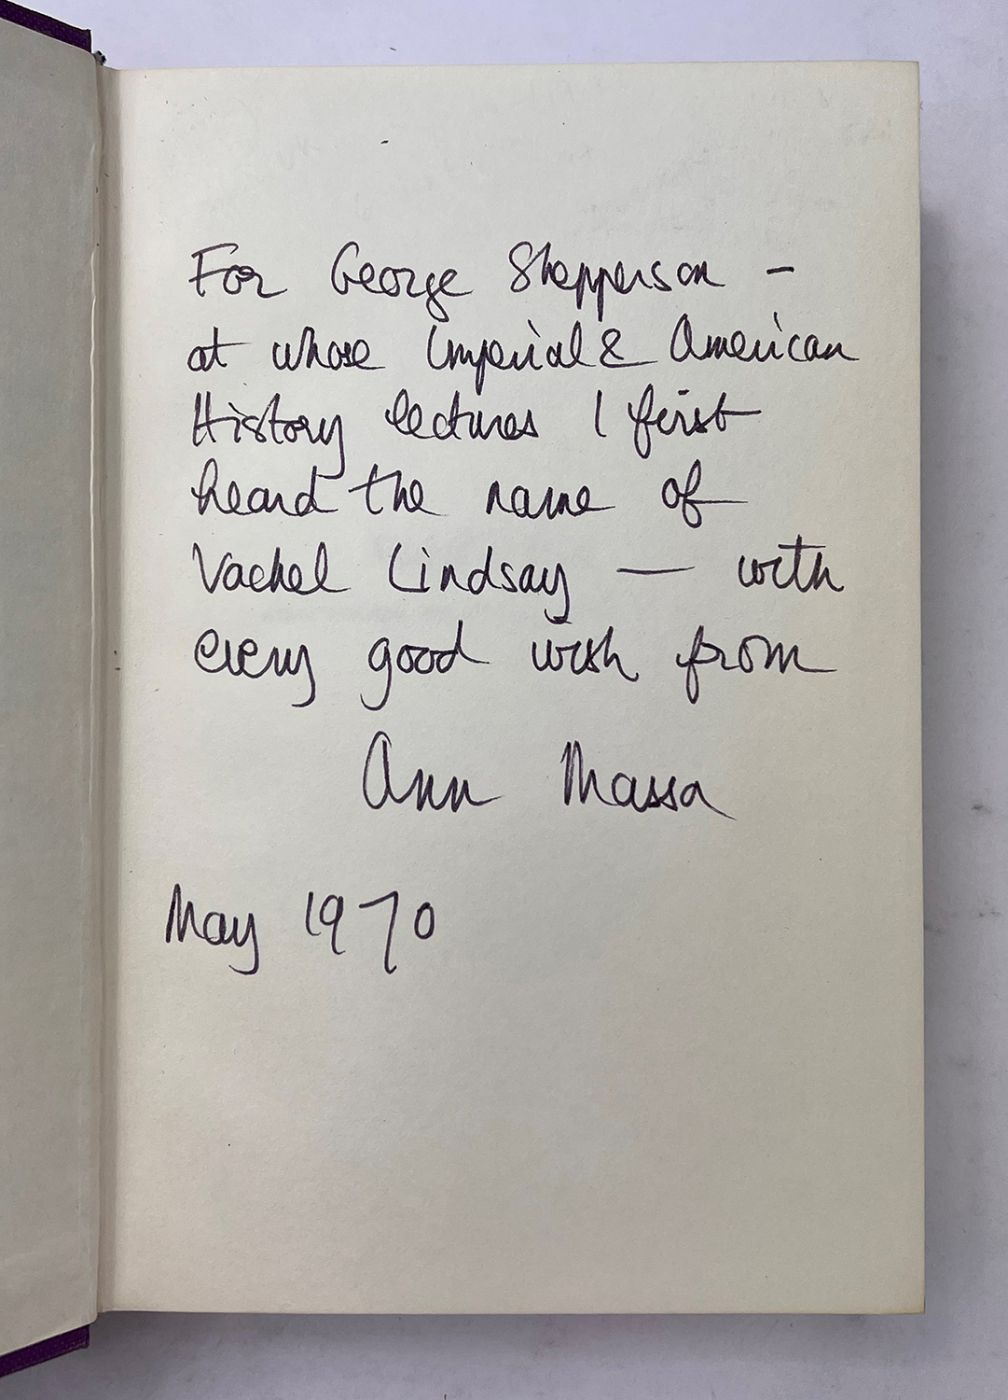 For George Shepperson –
at whose Imperial & American
History lectures I first
heard the name of
Vachel Lindsay — with
every good wish from
Ann Massa
May 1970